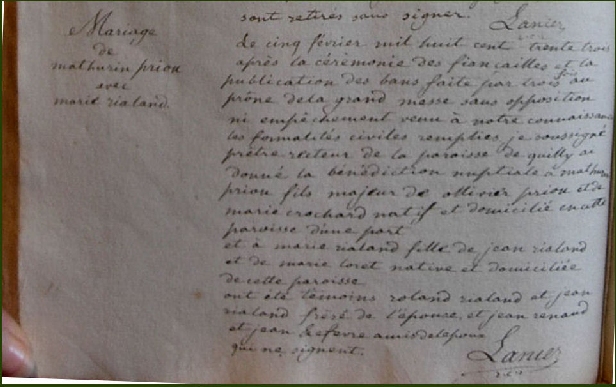 sont retirés sans signer. Lanier
Mariage
de
mathurin priou
avec
marie rialand.
Le cinq février mil huit cent trente trois
après la cérémonie des fiançailles et la
publication des bans faite par trois fois au
prône de la grand messe sans opposition
ni empêchement venu à notre connaissance
les formalités civiles remplies, je soussigné
prêtre recteur de la paroisse de quilly ai
donné la bénédiction nuptiale à mathurin
priou fils majeur de olivier priou et de
marie crochard natif et domicilié en cette
paroisse d'une part
et à marie rialand fille de jean rialand
et de marie loret native et domiciliée
de cette paroisse
ont été témoins roland rialand et jean
rialand frère de l'épouse, et jean renaud
et jean Lefevre amis de lepoux
qui ne signent.
Lanier